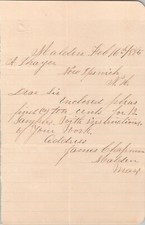 Malden Feb 16th 188
A Thayer
New Ipswich
N H
Dear Sir
Enclosed please
find fifteen cents for the
Samples with
of your work
Address
James Chapman
Malden
Mass